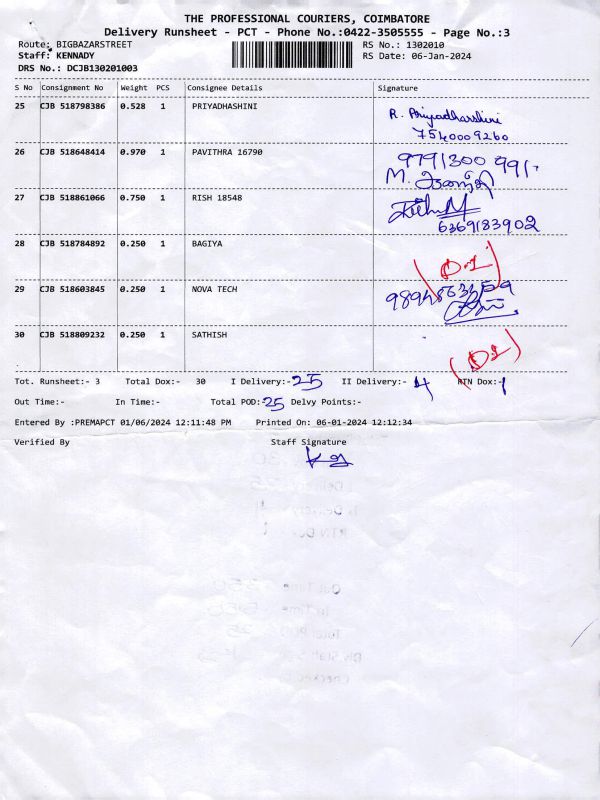 THE PROFESSIONAL COURIERS, COIMBATORE
Delivery Runsheet - PCT - Phone No.:0422-3505555 - Page No.:3
Route: BIGBAZARSTREET RS No.: 1302010
Staff: KENNADY RS Date: 06-Jan-2024
DRS No.: DCJB130201003
S No Consignment No Weight PCS Consignee Details Signature
25 CJB 518798386 0.528 1 PRIYADHASHINI R. Priyadharshini
7540009260
26 CJB 518648414 0.970 1 PAVITHRA 16790 9791300 991.
M.
27 CJB 518861066 0.750 1 RISH 18548
6369183902
28 CJB 518784892 0.250 1 BAGIYA (D.1)
29 CJB 518603845 0.250 1 NOVA TECH
30 CJB 518809232 0.250 1 SATHISH (D1)
Tot. Runsheet:- 3 Total Dox:- 30 I Delivery:-25 II Delivery:- 4 RTN Dox:-1
Out Time:- In Time:- Total POD:25 Delvy Points:-
Entered By :PREMAPCT 01/06/2024 12:11:48 PM Printed On: 06-01-2024 12:12:34
Verified By Staff Signature